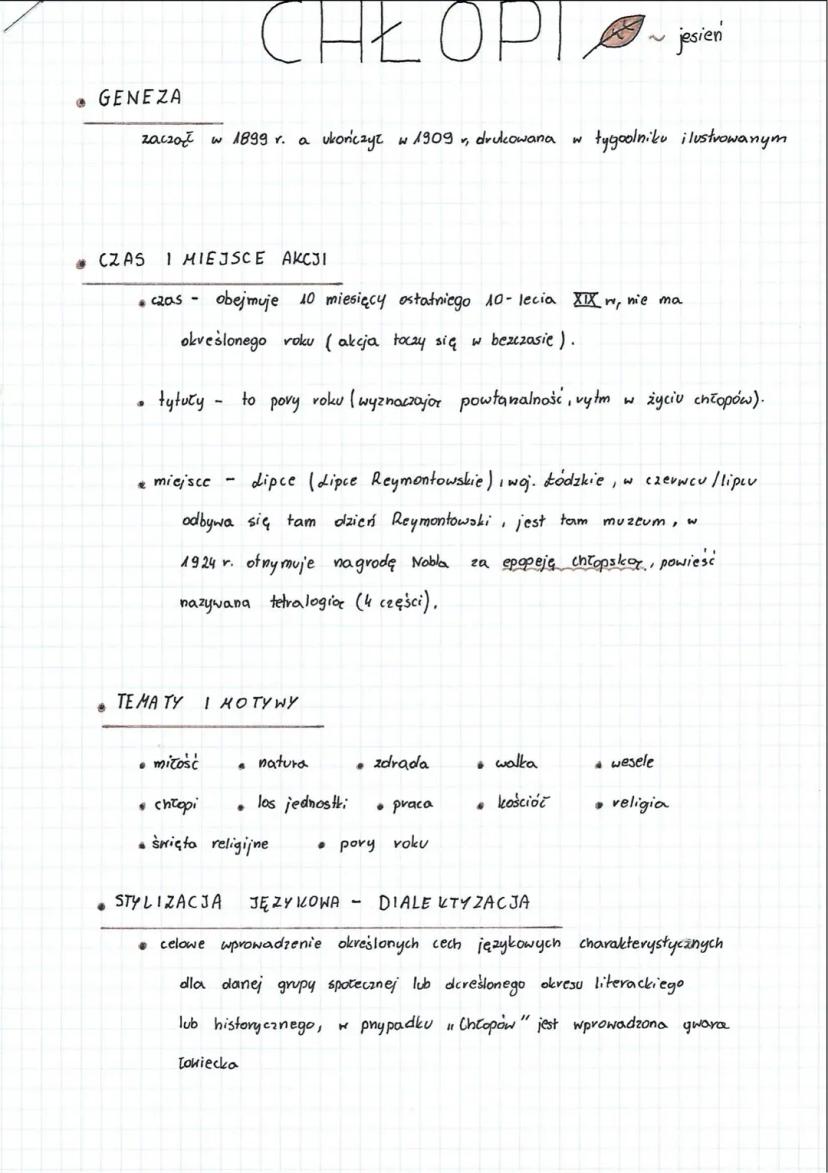 CHŁOPI ~ jesień
• GENEZA
zaczął w 1899 r. a ukończył w 1909 r, drukowana w tygodniku ilustrowanym
• CZAS I MIEJSCE AKCJI
• czas - obejmuje 10 miesięcy ostatniego 10-lecia XIX w, nie ma
określonego roku (akcja toczy się w bezczasie).
• tytuły - to pory roku (wyznaczają powtarzalność, rytm w życiu chłopów).
• miejsce - Lipce (Lipce Reymontowskie), woj. Łódzkie, w czerwcu/lipcu
odbywa się tam dzień Reymontowski, jest tam muzeum, w
1924 r. otrzymuje nagrodę Nobla za epopeję chłopską, powieść
nazywana tetralogią (4 części).
• TEMATY I MOTYWY
• miłość • natura • zdrada • walka • wesele
• chłopi • los jednostki • praca • kościół • religia
• święta religijne • pory roku
• STYLIZACJA JĘZYKOWA - DIALEKTYZACJA
• celowe wprowadzenie określonych cech językowych charakterystycznych
dla danej grupy społecznej lub określonego okresu literackiego
lub historycznego, w przypadku „Chłopów" jest wprowadzona gwara
łowiecka